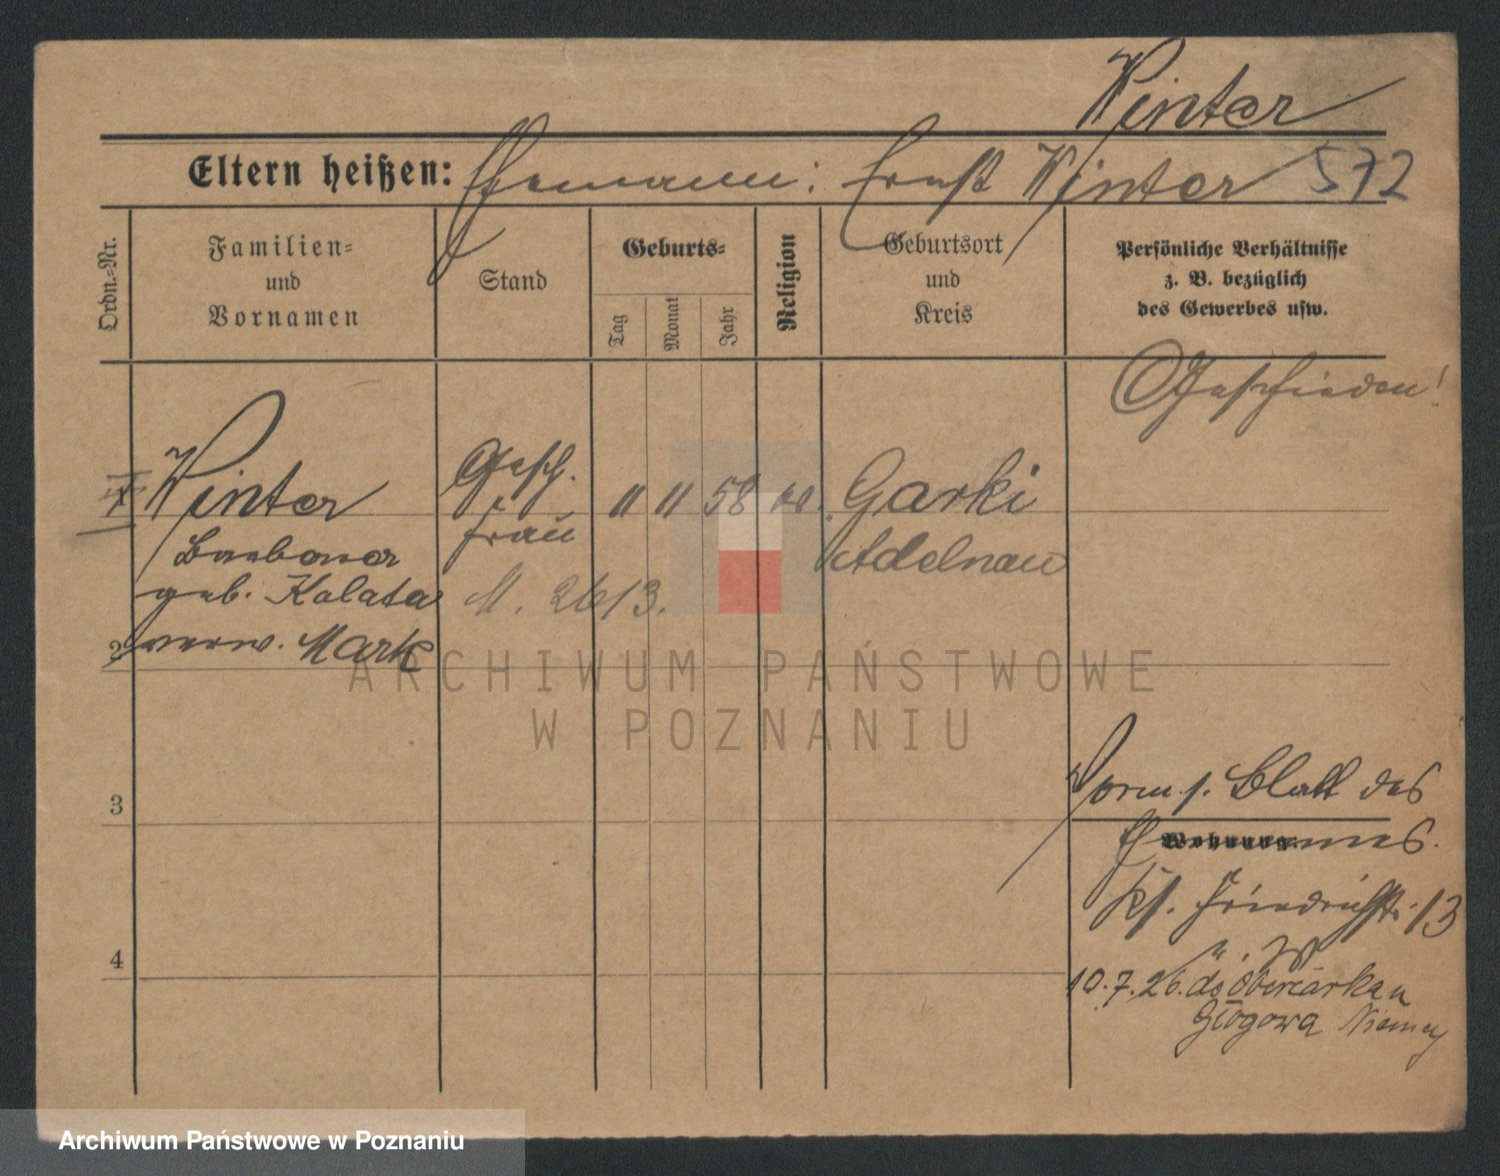 Winter
Eltern heißen: Ehemann: Ernst Winter 572
Ordn.-Nr.
Familien-
und
Vornamen
Stand
Geburts-
Tag
Monat
Jahr
Religion
Geburtsort
und
Kreis
Persönliche Verhältnisse
z. B. bezüglich
des Gewerbes usw.
Geschieden!
1 Winter Gesch. 11 11 58 Garki
Frau
geb. Kalata
verw. Mark
M. 2613.
Adelnau
2
3
4
Vorm. s. Blatt des
Wohnung.
Ehemannes.
Ks. Friedrichstr. 13
10.7.26. do
Głogowa Niemcy
ARCHIWUM PAŃSTWOWE
W POZNANIU
Archiwum Państwowe w Poznaniu